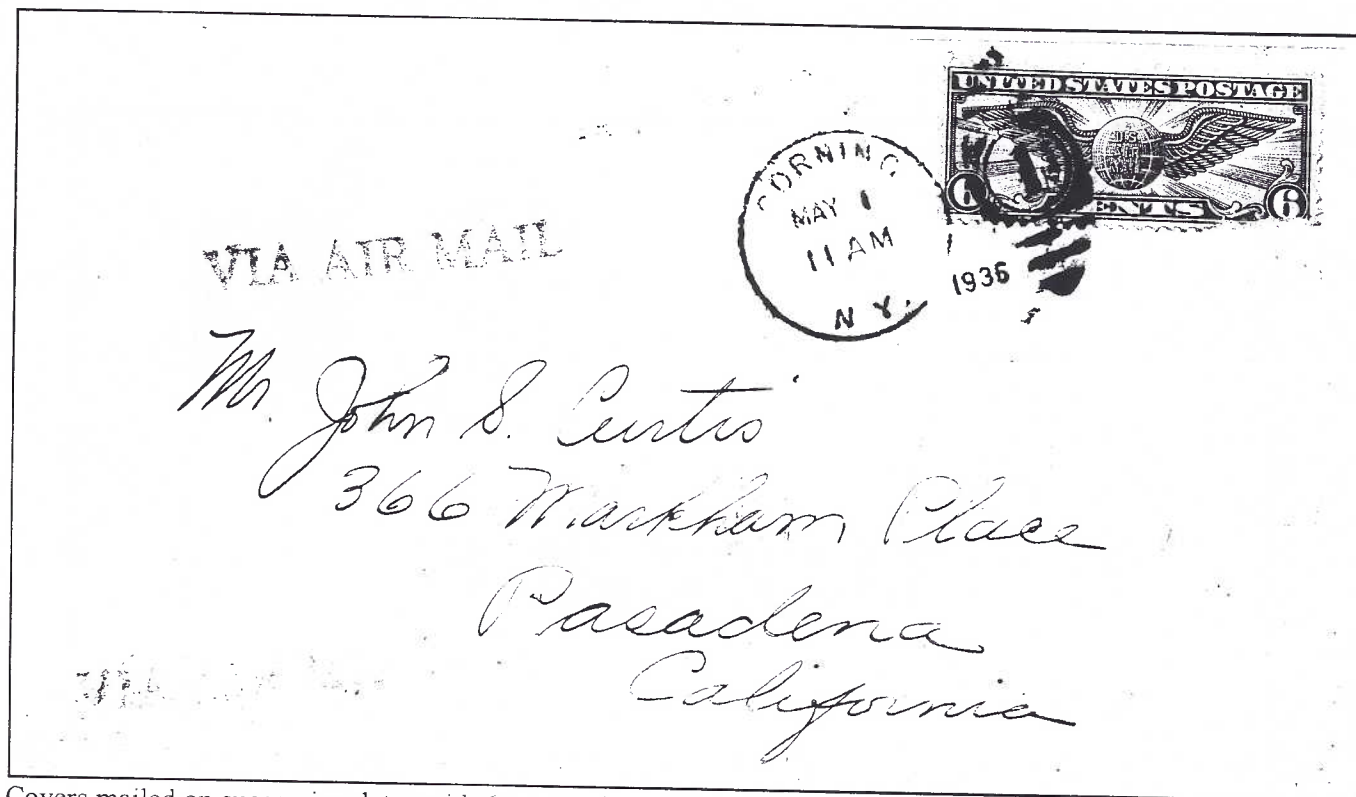 UNITED STATES POSTAGE
U.S.
AIR
MAIL
6 CENTS 6
CORNING
MAY 1
11 AM
1936
N.Y.
VIA AIR MAIL
Mr. John S. Curtis
366 Markham Place
Pasadena
California
VIA
Covers mailed on